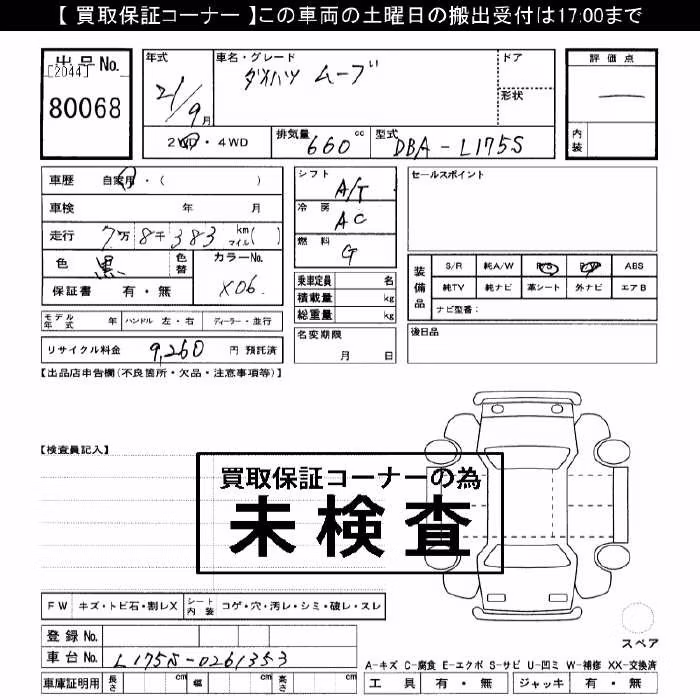 【 買取保証コーナー 】この車両の土曜日の搬出受付は17:00まで
出品No.
[2044]
80068
年式
21/9月
車名・グレード
ダイハツ ムーブ
ドア
形状
評価点
―
内装
2WD・4WD
排気量 660 cc
型式 DBA-L175S
車歴 自家用・( )
車検 年 月
走行 7万8千383 km マイル( )
色 黒
色替
カラーNo.
X06
保証書 有・無
シフト A/T
冷房 AC
燃料 G
乗車定員 名
積載量 kg
総重量 kg
セールスポイント
装備品
S/R 純A/W P/S P/W ABS
純TV 純ナビ 革シート 外ナビ エアB
ナビ型番:
モデル年式 年 ハンドル 左・右 ディーラー・並行
名変期限
月 日
後日品
リサイクル料金 9,260 円 預託済
【出品店申告欄(不良箇所・欠品・注意事項等)】
【検査員記入】
買取保証コーナーの為
未検査
FW キズ・トビ石・割レX シート内装 コゲ・穴・汚レ・シミ・破レ・スレ
スペア
登録No.
車台No. L175S-0261353
A-キズ C-腐食 E-エクボ S-サビ U-凹ミ W-補修 XX-交換済
車庫証明用 長さ cm 幅 cm 高さ cm
工具 有・無 ジャッキ 有・無